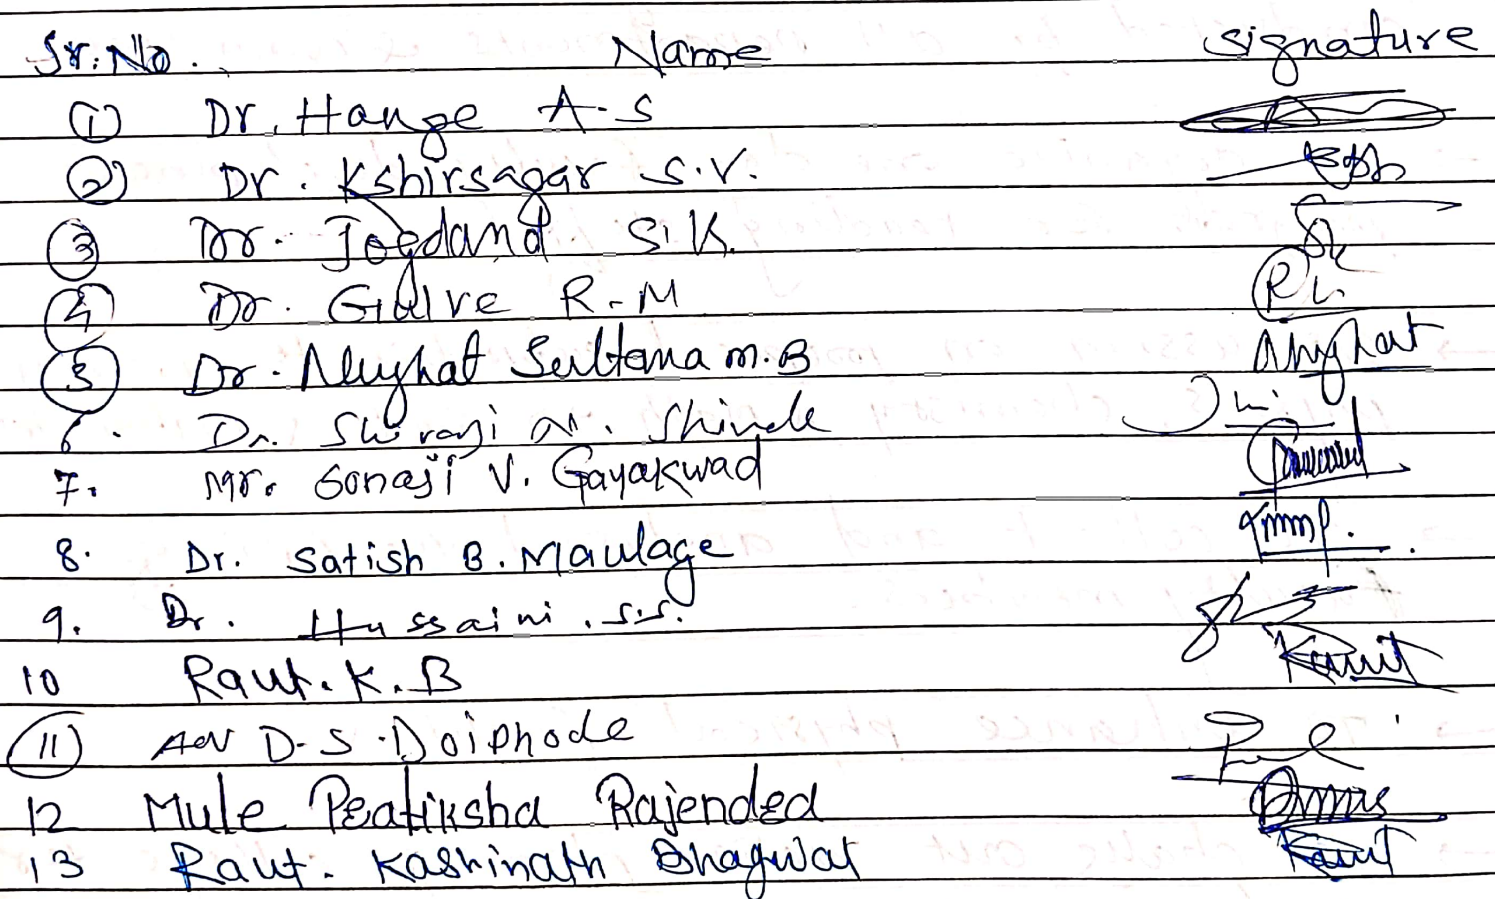 Sr. No. Name signature
① Dr. Hange A-S
② Dr. Kshirsagar S.V.
③ Dr. Jogdand S.K.
④ Dr. Gulve R.M
⑤ Dr. Nuyhat Sultana M.B Nuyhat
6. Dr. Shivaji N. Shinde
7. Mr. Sonaji V. Gayakwad
8. Dr. Satish B. Maulage
9. Dr. Hussaini .S.S.
10 Raut. K. B Raut
⑪ Adv D-S.Doiphode
12 Mule Peatiksha Rajended
13 Raut. Kashinath Bhagwat Raut